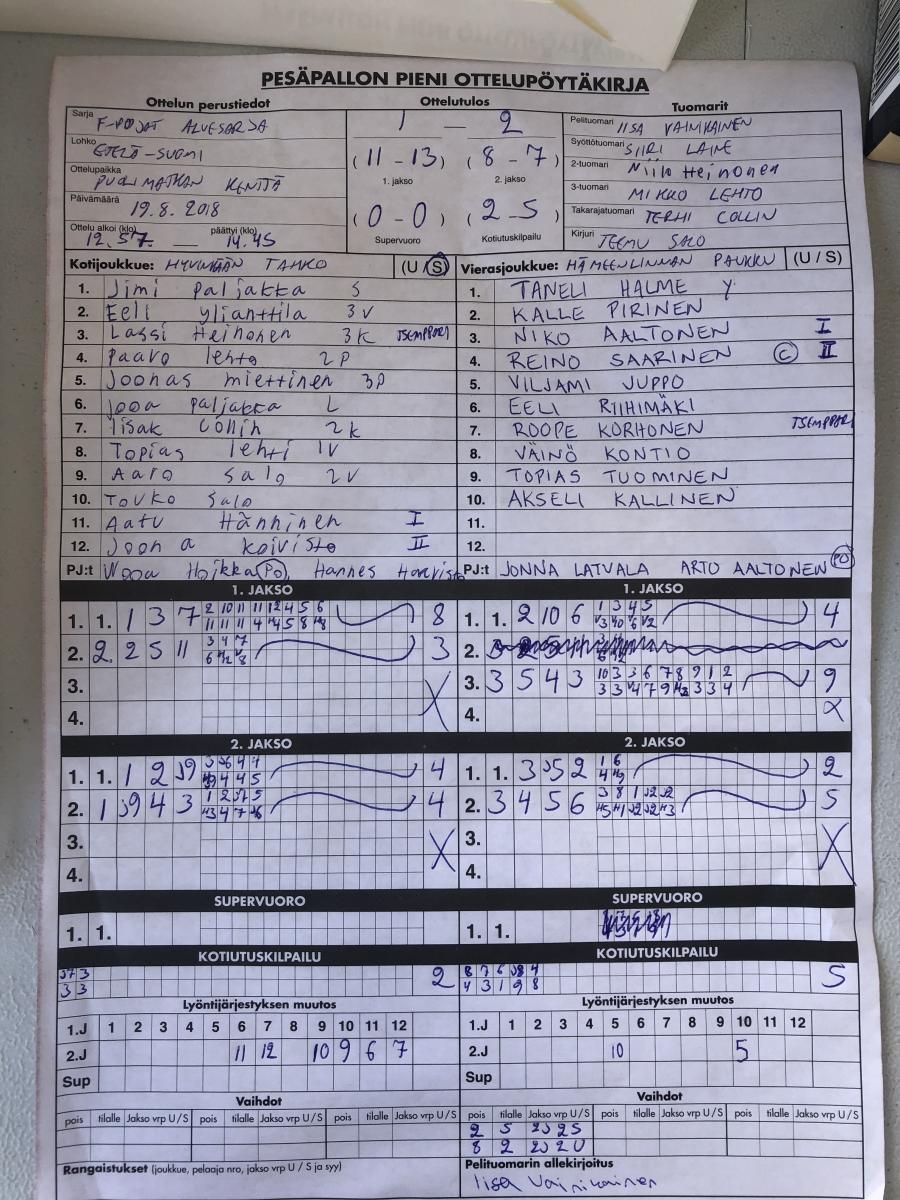 PESÄPALLON PIENI OTTELUPÖYTÄKIRJA
Ottelun perustiedot
Sarja F-POJAT ALUESARJA
Lohko ETELÄ-SUOMI
Ottelupaikka PUOLIMATKAN KENTTÄ
Päivämäärä 19.8.2018
Ottelu alkoi (klo) päättyi (klo)
12.57 — 14.45
Ottelutulos
1 — 2
(11 - 13) (8 - 7)
1. jakso 2. jakso
(0 - 0) (2 - 5)
Supervuoro Kotiutuskilpailu
Tuomarit
Pelituomari IISA VAINIKAINEN
Syöttötuomari SIIRI LAINE
2-tuomari Niilo Heinonen
3-tuomari MIKKO LEHTO
Takarajatuomari TERHI COLLIN
Kirjuri TEEMU SALO
Kotijoukkue: HYVINKÄÄN TAHKO (U / S)
1. Jimi paljakka S
2. Eeli ylianttila 3V
3. Lassi Heinonen 3K TSEMPPARI
4. paavo lehto 2P
5. Joonas miettinen 3P
6. Jooa paljakka L
7. Iisak Collin 2k
8. Topias lehti 1V
9. Aaro Salo 2V
10. Touko Salo
11. Aatu Hänninen I
12. Joona koivisto II
PJ:t Hoikka (PO), Hannes
Vierasjoukkue: HÄMEENLINNAN PAUKKU (U / S)
1. TANELI HALME Y
2. KALLE PIRINEN
3. NIKO AALTONEN I
4. REINO SAARINEN C II
5. VILJAMI JUPPO
6. EELI RIIHIMÄKI
7. ROOPE KORHONEN TSEMPPARI
8. VÄINÖ KONTIO
9. TOPIAS TUOMINEN
10. AKSELI KALLINEN
11.
12.
PJ:t JONNA LATVALA ARTO AALTONEN PO
1. JAKSO
1. 1. 1 3 7 8
2. 2 2 5 11 3
3.
4.
1. JAKSO
1. 1. 2 10 6 4
2.
3. 3 5 4 3 9
4.
2. JAKSO
1. 1. 1 2 J9 4
2. 1 J9 4 3 4
3.
4.
2. JAKSO
1. 1. 3 J5 2 2
2. 3 4 5 6 5
3.
4.
SUPERVUORO
1. 1.
SUPERVUORO
1. 1.
KOTIUTUSKILPAILU
J7 3 2
3 3
KOTIUTUSKILPAILU
8 7 6 J8 4 5
4 3 1 9 8
Lyöntijärjestyksen muutos
1.J 1 2 3 4 5 6 7 8 9 10 11 12
2.J 11 12 10 9 6 7
Sup
Lyöntijärjestyksen muutos
1.J 1 2 3 4 5 6 7 8 9 10 11 12
2.J 10 5
Sup
Vaihdot
pois tilalle Jakso vrp U / S pois tilalle Jakso vrp U / S pois tilalle Jakso vrp U / S
Vaihdot
pois tilalle Jakso vrp U / S pois tilalle Jakso vrp U / S pois tilalle Jakso vrp U / S
2 5 2J 2S
8 2 2J 2U
Rangaistukset (joukkue, pelaaja nro, jakso vrp U / S ja syy)
Pelituomarin allekirjoitus
Iisa Vainikainen